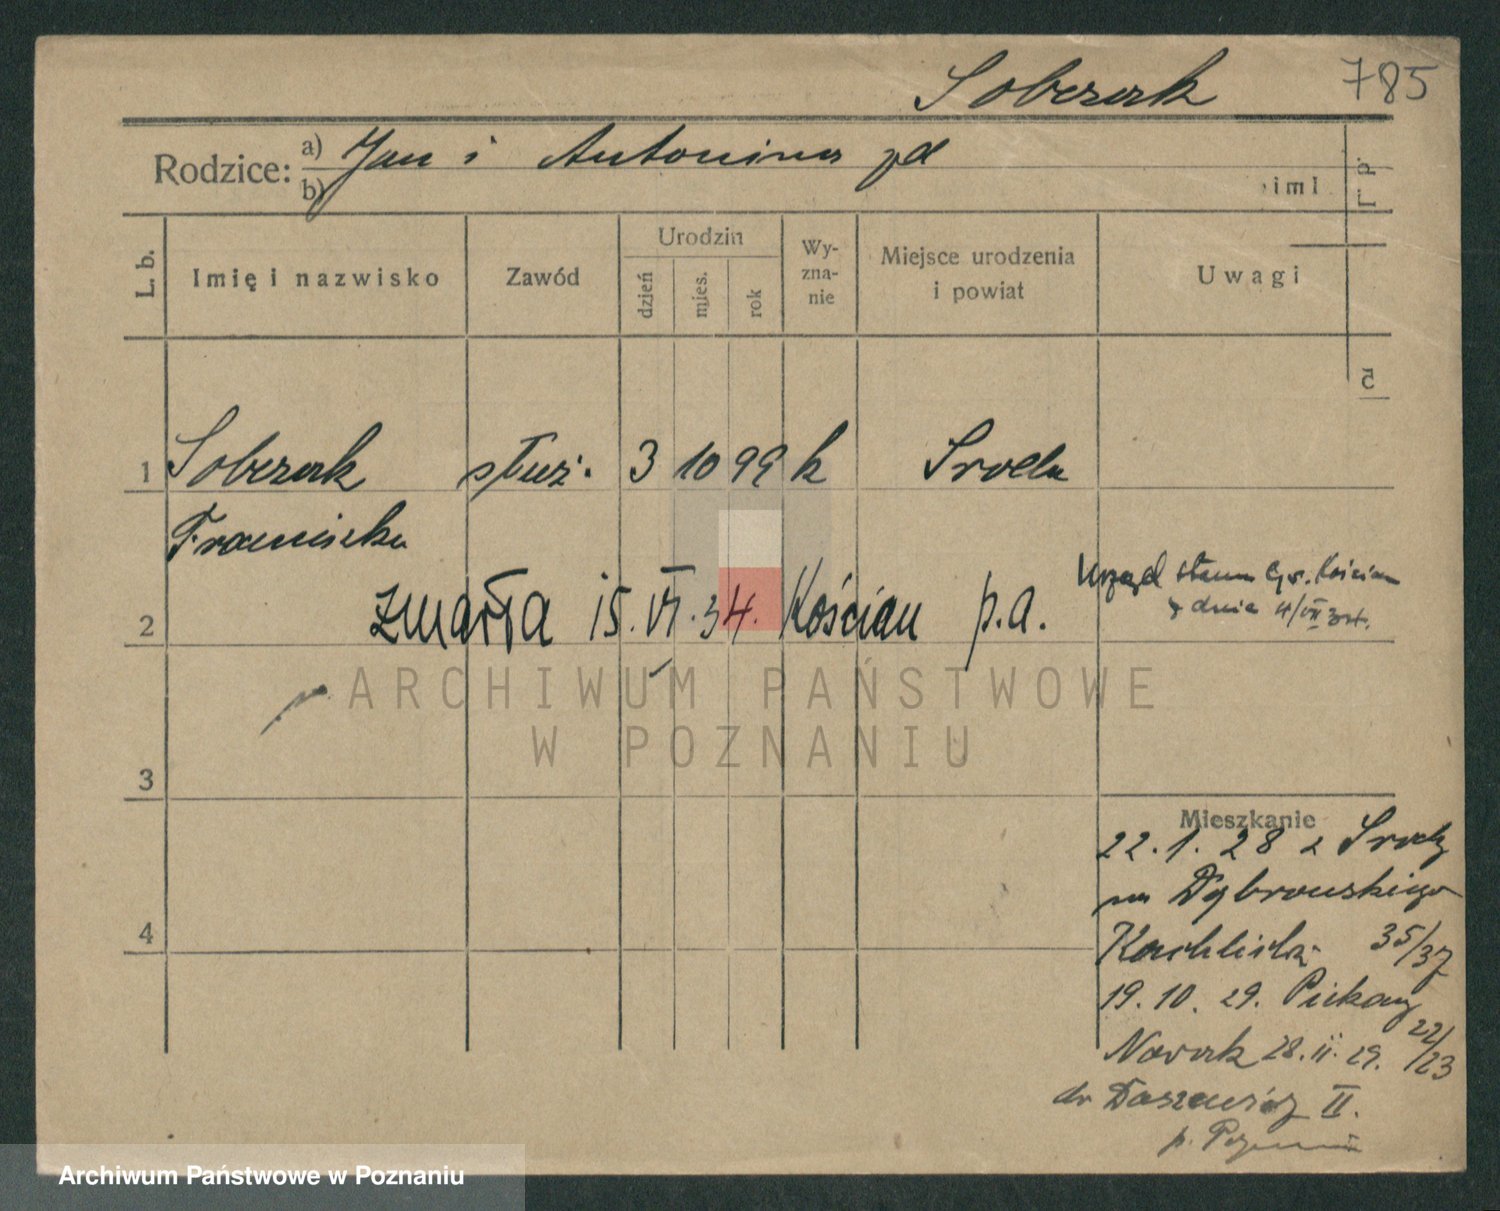 Sobczak 785
Rodzice: a) Jan i Antonina
b)
L. b. Imię i nazwisko Zawód Urodzin dzień mies. rok Wyznanie Miejsce urodzenia i powiat Uwagi
1 Sobczak służ. 3 10 99 k Środa
Franciszka
2 zmarła 15.VI.34. Kościan p.a. Urząd stanu cyw. Kościan
z dnia 4/VII 34.
ARCHIWUM PAŃSTWOWE
W POZNANIU
3
Mieszkanie
22.1.28 z Środy
na Dąbrowskiego
4 35/37
19.10.29. Piekary
Nowak 28.11.29. 22/23
do II.
Archiwum Państwowe w Poznaniu